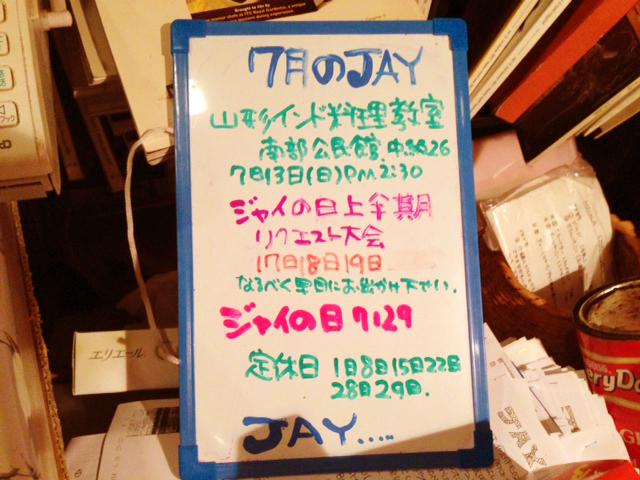 7月のJAY
山形インド料理教室
南部公民館
7日13日(日)Pm.2:30
ジャイの日上半期
リクエスト大会
17日18日19日
なるべく早目にお出かけ下さい.
ジャイの日 7.29
定休日 1日8日15日22日
28日29日.
JAY.....
エリエール